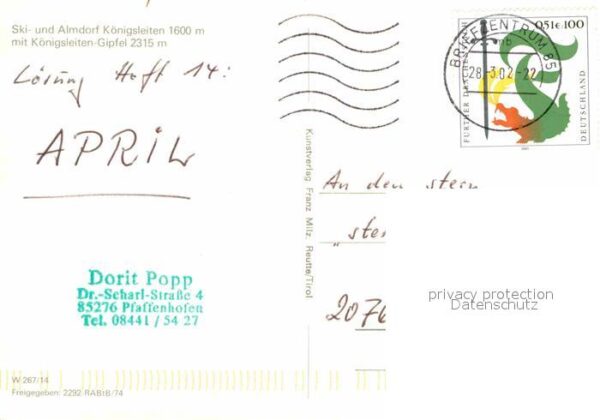 Ski- und Almdorf Königsleiten 1600 m
mit Königsleiten-Gipfel 2315 m
Lösung Heft 14:
APRIL
Dorit Popp
Dr.-Scharl-Straße 4
85276 Pfaffenhofen
Tel. 08441 / 54 27
W 267/14
Freigegeben: 2292 RABtB/74
Kunstverlag Franz Milz, Reutte/Tirol
BRIEFZENTRUM 85
28.-3.02-22
0,51€ 100
FURTHER DRACHENSTICH
DEUTSCHLAND
An den stern
"ster
2076
privacy protection
Datenschutz